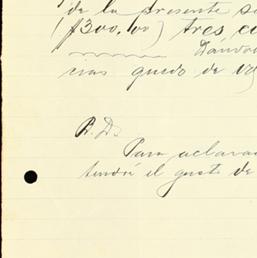 de la presente s
($300.00) tres c
Dándo
cias quedo de V
P. D.
Para aclara
tendré el gusto de